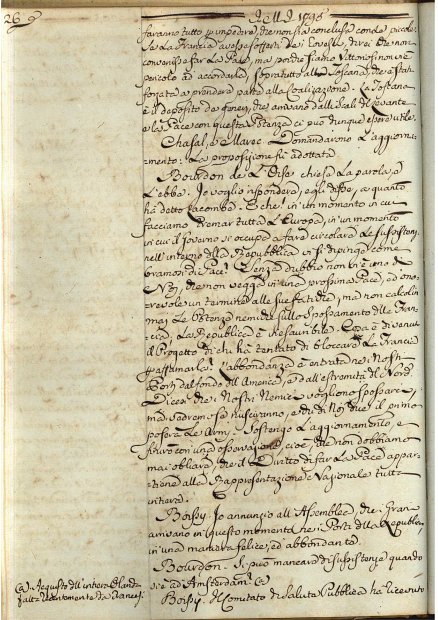 269
A. M. D. 1795
faranno tutto p impedire, che non sia conclusa con le piccole
se la Francia avesse sofferti dei Rovesci, direi che non
convenisse far la Pace, ma poiché siamo Vittoriosi non vi è
pericolo ad accordarla, sopratutto alla Toscana, che è stata
forzata a prendere parte alla Coalizzazione. La Toscana
è il deposito de generi, che arrivano dalli Scali di Levante
e la Pace con questa Potenza ci può dunque essere utile.
Chasal, e Mavec Domandarono l'aggiorna-
mento: La proposizione fù adottata
Bourdon de L'Oise chiese la parola, e
l'ebbe. Io voglio rispondere, egli disse, a quanto
ha detto Lacombe. E che! in un momento in cui
facciamo tremar tutta l'Europa, in un momento
in cui il Governo si occupa a fare circolare le sussistenze
nell'interno della Repubblica vi si dipinge come
bramosi di Pace! Senza dubbio non vi è uno di
Noi, che non vegga in una prossima Pace, ed ono-
revole un termine alle sue fatiche, ma non calcolin
mai le Potenze nemiche sullo spossamento della Fran-
cia. La Repubblica è inesauribile. Cosa è divenuto
il Progetto di chi ha tentato di bloccare la Francia
p affamarla? L'abbondanza è entrata nei Nostri
Porti dal fondo dell'America, e dall'estremità del Nord
Dicesi che i Nostri Nemici vogliono spossarci,
ma vedremo se riusciranno, e chi di Noi due il primo
poserà le Armi. Sostengo l'aggiornamento, e
finirò con un'osservazione, cioè, che non dobbiamo
mai obliare, che il Diritto di far la Pace appar-
tiene alla Rappresentazione Nazionale tutt'
intiera.
Boissy. Io annunzio all'Assemblea, che i Grani
arrivano in questo momento nei Porti della Repubblica
in una maniera felice, ed abbondante.
Bourdon. Si può mancare di sussistenze quando
si è ad Amsterdam? (a)
Boissy. Il Comitato di Salute Pubblica ha ricevuto
(a) Acquisto dell'intiera Olanda
fatto recentemente da Francesi